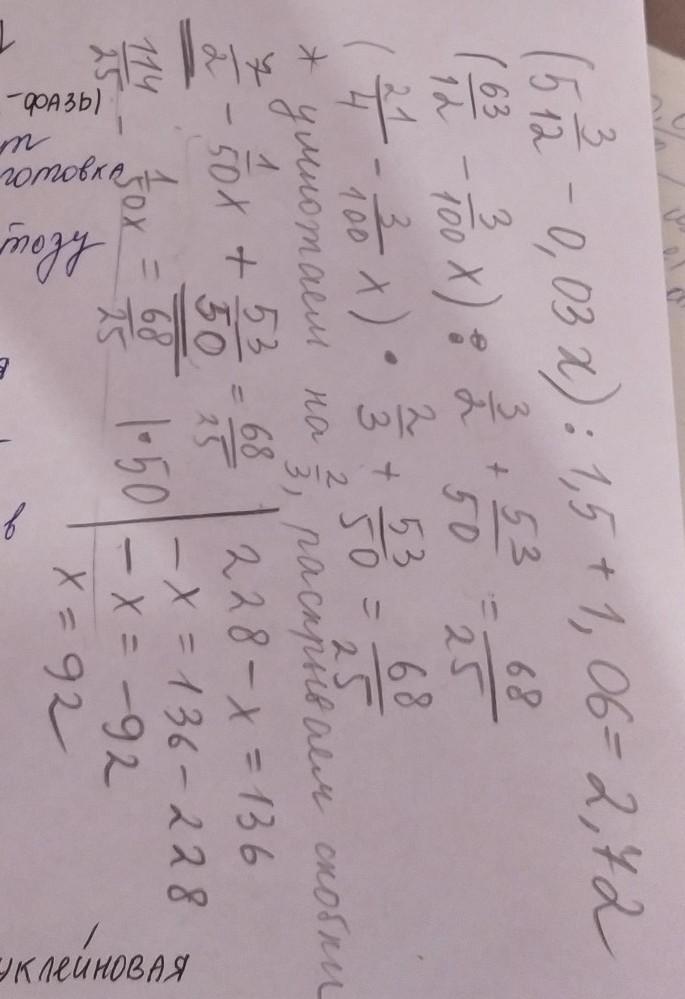 (5 3/12 - 0,03x) : 1,5 + 1,06 = 2,72
(63/12 - 3/100 x) : 3/2 + 53/50 = 68/25
(21/4 - 3/100 x) · 2/3 + 53/50 = 68/25
* умножаем на 2/3, раскрываем скобки
7/2 - 1/50 x + 53/50 = 68/25
114/25 - 1/50 x = 68/25 |·50
228 - x = 136
-x = 136 - 228
-x = -92
x = 92
-фазы
готовка
тозу
в
уклеиновая